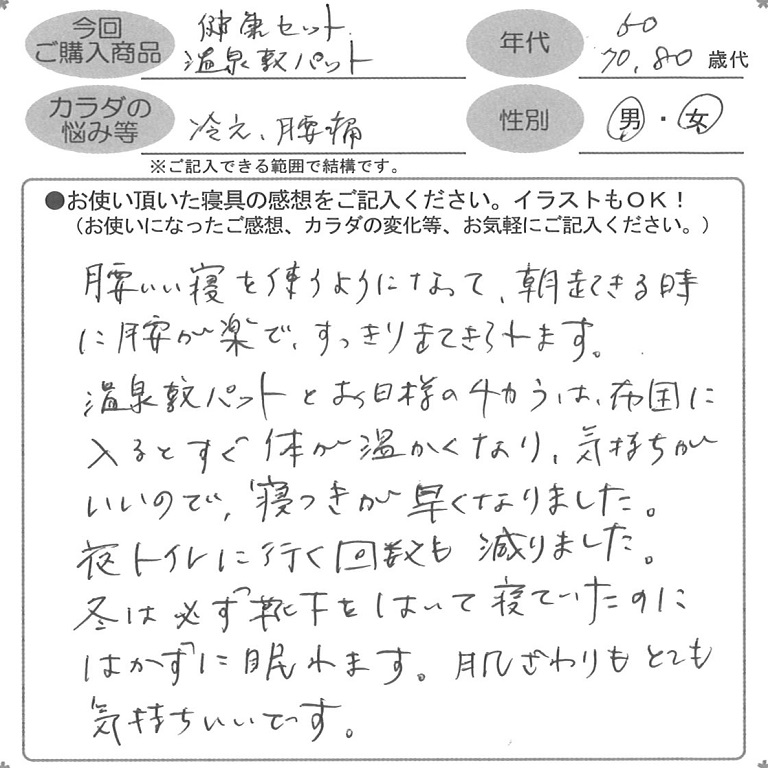 今回
ご購入商品
健康セット
温泉敷パット
年代
60
70,80 歳代
カラダの
悩み等
冷え、腰痛
性別
男・女
※ご記入できる範囲で結構です。
●お使い頂いた寝具の感想をご記入ください。イラストもOK!
(お使いになったご感想、カラダの変化等、お気軽にご記入ください。)
腰いい寝を使うようになって、朝起きる時
に腰が楽で、すっきり起きられます。
温泉敷パットとお日様のチカラは、布団に
入るとすぐ体が温かくなり、気持ちが
いいので、寝つきが早くなりました。
夜トイレに行く回数も減りました。
冬は必ず靴下をはいて寝ていたのに
はかずに眠れます。肌ざわりもとても
気持ちいいです。